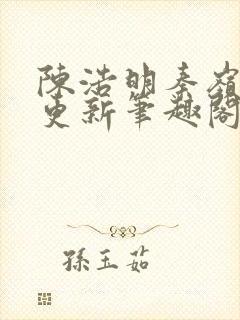 陳浩明秦嶺
更新筆趣閣
孫玉茹